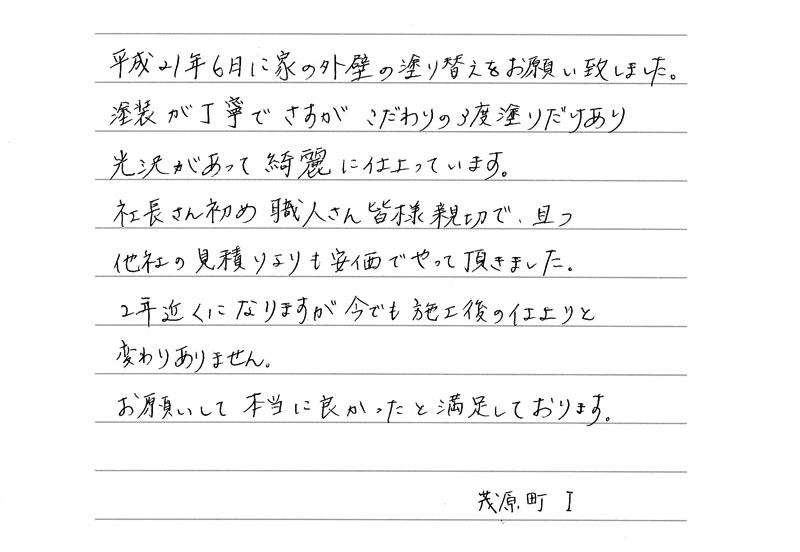 平成21年6月に家の外壁の塗り替えをお願い致しました。
塗装が丁寧でさすがこだわりの3度塗りだけあり
光沢があって綺麗に仕上っています。
社長さん初め職人さん皆様親切で、且つ
他社の見積りよりも安価でやって頂きました。
2年近くになりますが今でも施工後の仕上りと
変わりありません。
お願いして本当に良かったと満足しております。
茂原町 I